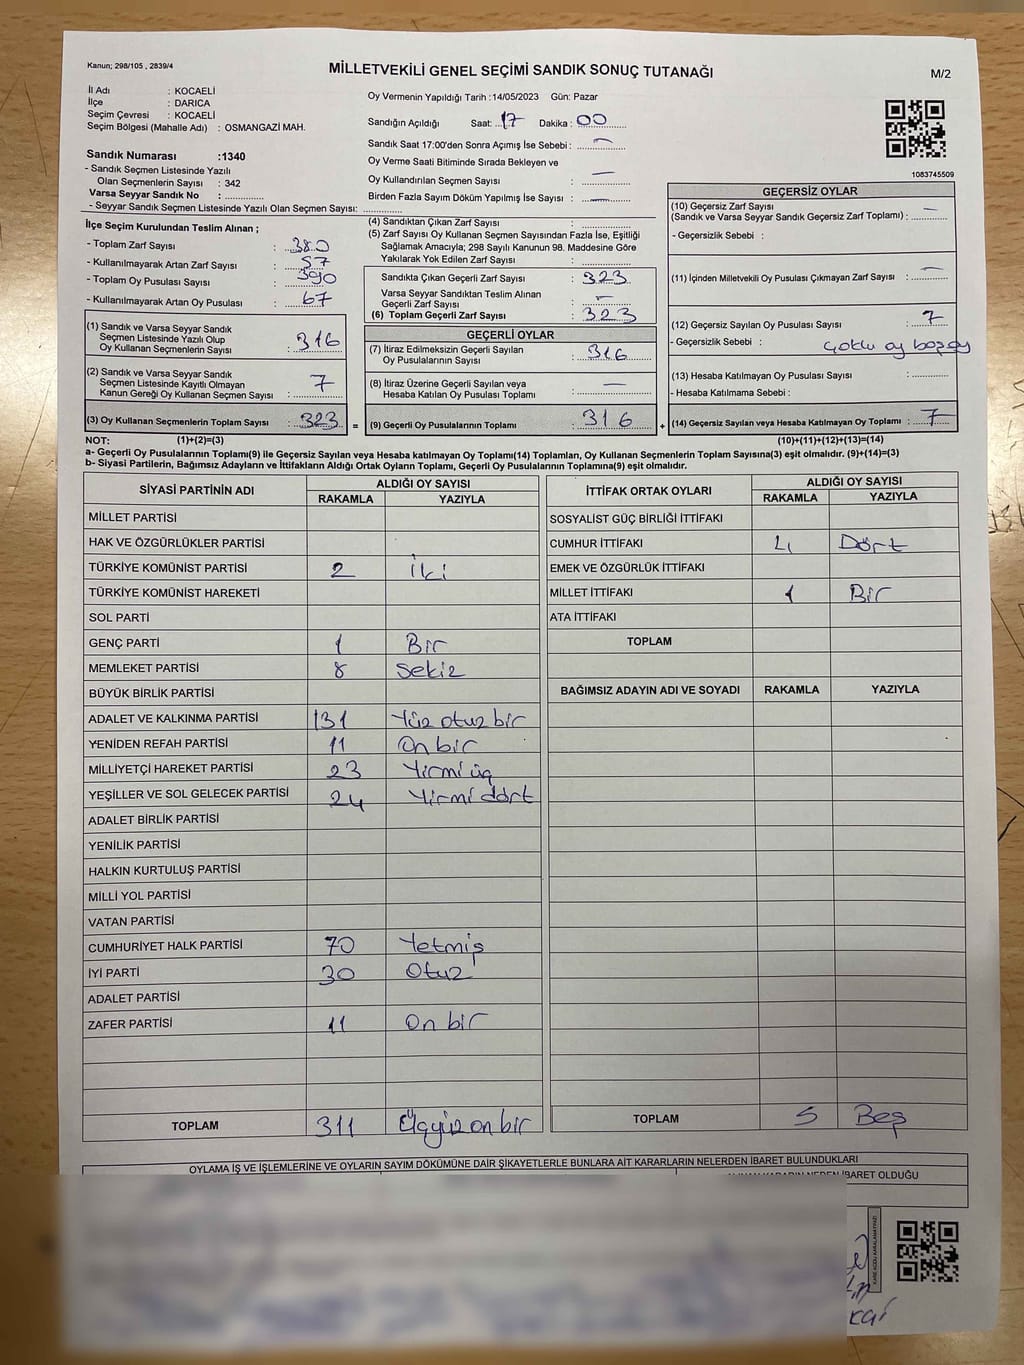 Kanun; 298/105 , 2839/4
MİLLETVEKİLİ GENEL SEÇİMİ SANDIK SONUÇ TUTANAĞI
M/2
İl Adı : KOCAELİ
İlçe : DARICA
Seçim Çevresi : KOCAELİ
Seçim Bölgesi (Mahalle Adı) : OSMANGAZİ MAH.
Sandık Numarası :1340
- Sandık Seçmen Listesinde Yazılı
Olan Seçmenlerin Sayısı : 342
Varsa Seyyar Sandık No :
- Seyyar Sandık Seçmen Listesinde Yazılı Olan Seçmen Sayısı:
Oy Vermenin Yapıldığı Tarih :14/05/2023 Gün: Pazar
Sandığın Açıldığı Saat: 17 Dakika : 00
Sandık Saat 17:00'den Sonra Açımış İse Sebebi : —
Oy Verme Saati Bitiminde Sırada Bekleyen ve
Oy Kullandırılan Seçmen Sayısı : —
Birden Fazla Sayım Döküm Yapılmış İse Sayısı : —
1083745509
İlçe Seçim Kurulundan Teslim Alınan ;
- Toplam Zarf Sayısı : 380
- Kullanılmayarak Artan Zarf Sayısı : 57
- Toplam Oy Pusulası Sayısı :
- Kullanılmayarak Artan Oy Pusulası : 67
(1) Sandık ve Varsa Seyyar Sandık
Seçmen Listesinde Yazılı Olup
Oy Kullanan Seçmenlerin Sayısı : 316
(2) Sandık ve Varsa Seyyar Sandık
Seçmen Listesinde Kayıtlı Olmayan
Kanun Gereği Oy Kullanan Seçmen Sayısı : 7
(3) Oy Kullanan Seçmenlerin Toplam Sayısı : 323 =
(4) Sandıktan Çıkan Zarf Sayısı :
(5) Zarf Sayısı Oy Kullanan Seçmen Sayısından Fazla İse, Eşitliği
Sağlamak Amacıyla; 298 Sayılı Kanunun 98. Maddesine Göre
Yakılarak Yok Edilen Zarf Sayısı :
Sandıkta Çıkan Geçerli Zarf Sayısı : 323
Varsa Seyyar Sandıktan Teslim Alınan
Geçerli Zarf Sayısı : —
(6) Toplam Geçerli Zarf Sayısı : 323
GEÇERLİ OYLAR
(7) İtiraz Edilmeksizin Geçerli Sayılan
Oy Pusulalarının Sayısı : 316
(8) İtiraz Üzerine Geçerli Sayılan veya
Hesaba Katılan Oy Pusulası Toplamı : —
(9) Geçerli Oy Pusulalarının Toplamı : 316 +
GEÇERSİZ OYLAR
(10) Geçersiz Zarf Sayısı
(Sandık ve Varsa Seyyar Sandık Geçersiz Zarf Toplamı) : —
- Geçersizlik Sebebi :
(11) İçinden Milletvekili Oy Pusulası Çıkmayan Zarf Sayısı : —
(12) Geçersiz Sayılan Oy Pusulası Sayısı : 7
- Geçersizlik Sebebi : çoklu oy boş oy
(13) Hesaba Katılmayan Oy Pusulası Sayısı :
- Hesaba Katılmama Sebebi :
(14) Geçersiz Sayılan veya Hesaba Katılmayan Oy Toplamı : 7
NOT: (1)+(2)=(3) (10)+(11)+(12)+(13)=(14)
a- Geçerli Oy Pusulalarının Toplamı(9) ile Geçersiz Sayılan veya Hesaba katılmayan Oy Toplamı(14) Toplamları, Oy Kullanan Seçmenlerin Toplam Sayısına(3) eşit olmalıdır. (9)+(14)=(3)
b- Siyasi Partilerin, Bağımsız Adayların ve İttifakların Aldığı Ortak Oyların Toplamı, Geçerli Oy Pusulalarının Toplamına(9) eşit olmalıdır.
SİYASİ PARTİNİN ADI ALDIĞI OY SAYISI
RAKAMLA YAZIYLA
MİLLET PARTİSİ
HAK VE ÖZGÜRLÜKLER PARTİSİ
TÜRKİYE KOMÜNİST PARTİSİ 2 İki
TÜRKİYE KOMÜNİST HAREKETİ
SOL PARTİ
GENÇ PARTİ 1 Bir
MEMLEKET PARTİSİ 8 Sekiz
BÜYÜK BİRLİK PARTİSİ
ADALET VE KALKINMA PARTİSİ 131 Yüz otuz bir
YENİDEN REFAH PARTİSİ 11 On bir
MİLLİYETÇİ HAREKET PARTİSİ 23 Yirmi üç
YEŞİLLER VE SOL GELECEK PARTİSİ 24 Yirmi dört
ADALET BİRLİK PARTİSİ
YENİLİK PARTİSİ
HALKIN KURTULUŞ PARTİSİ
MİLLİ YOL PARTİSİ
VATAN PARTİSİ
CUMHURİYET HALK PARTİSİ 70 Yetmiş
İYİ PARTİ 30 Otuz
ADALET PARTİSİ
ZAFER PARTİSİ 11 On bir
TOPLAM 311 Üçyüz on bir
İTTİFAK ORTAK OYLARI ALDIĞI OY SAYISI
RAKAMLA YAZIYLA
SOSYALİST GÜÇ BİRLİĞİ İTTİFAKI
CUMHUR İTTİFAKI 4 Dört
EMEK VE ÖZGÜRLÜK İTTİFAKI
MİLLET İTTİFAKI 1 Bir
ATA İTTİFAKI
TOPLAM
BAĞIMSIZ ADAYIN ADI VE SOYADI RAKAMLA YAZIYLA
TOPLAM 5 Beş
OYLAMA İŞ VE İŞLEMLERİNE VE OYLARIN SAYIM DÖKÜMÜNE DAİR ŞİKAYETLERLE BUNLARA AİT KARARLARIN NELERDEN İBARET BULUNDUKLARI
İBARET OLDUĞU